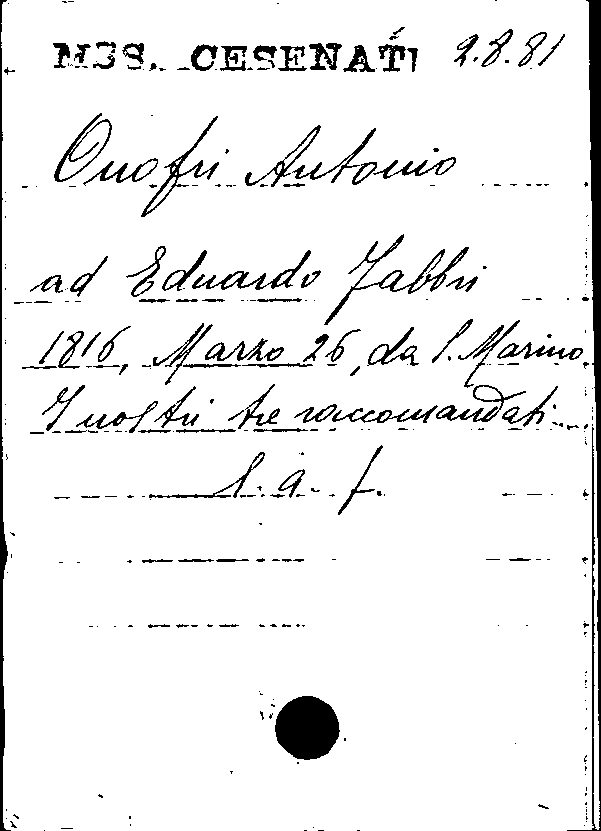 MSS. CESENATI 2.8.81
Onofri Antonio
ad Eduardo Fabbri
1816, Marzo 26, da S. Marino.
I nostri tre raccomandati
l. a. f.